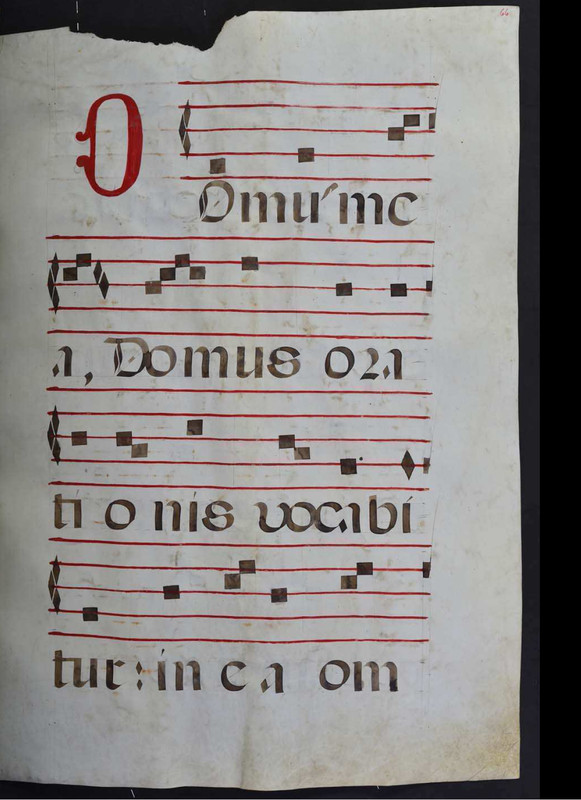 66
D
Omuˊme
a, Domus ora
ti o nis vocabi
tur : in e a om